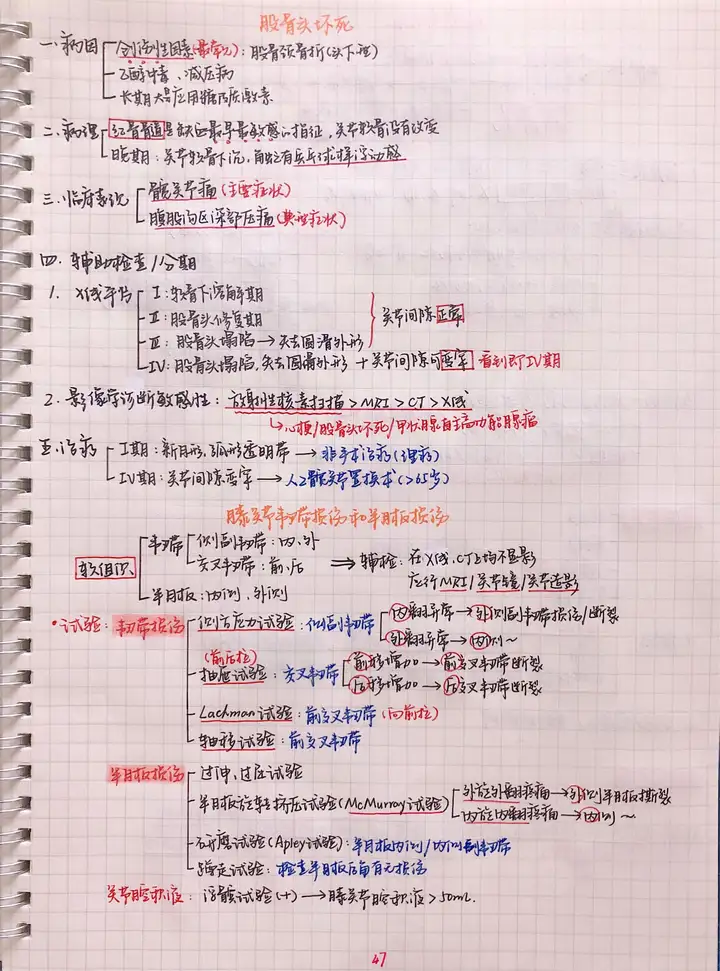 股骨头坏死
一.病因 创伤性因素(最常见):股骨颈骨折(头下型)
乙醇中毒、减压病
长期大量应用糖皮质激素
二.病理 红骨髓是缺血最早最敏感的指征,关节软骨没有改变
晚期:关节软骨下沉,触之有乒乓球样浮动感
三.临床表现 髋关节痛(主要症状)
腹股沟区深部压痛(典型症状)
四.辅助检查/分期
1. X线平片 I:软骨下溶解期
II:股骨头修复期
III:股骨头塌陷→失去圆滑外形
关节间隙正常
IV:股骨头塌陷,失去圆滑外形+关节间隙可变窄 看到即IV期
2.影像学诊断敏感性:放射性核素扫描>MRI>CT>X线
→心梗/股骨头坏死/甲状腺自主高功能腺瘤
五.治疗 I期:新月形,弧形透明带→非手术治疗(理疗)
IV期:关节间隙变窄→人工髋关节置换术(>65岁)
膝关节韧带损伤和半月板损伤
软组织 韧带 侧副韧带:内、外
交叉韧带:前、后 ⇒辅检:在X线、CT上均不显影
半月板:内侧、外侧 应行MRI/关节镜/关节造影
•试验:韧带损伤 侧方应力试验:侧副韧带 内翻异常→外侧副韧带损伤/断裂
外翻异常→内侧~
(前后拉)
抽屉试验:交叉韧带 前移增加→前交叉韧带断裂
后移增加→后交叉韧带断裂
Lachman试验:前交叉韧带(向前拉)
轴移试验:前交叉韧带
半月板损伤 过伸,过屈试验
半月板旋转挤压试验(McMurray试验) 外旋外翻疼痛→外侧半月板撕裂
内旋内翻疼痛→内侧~
研磨试验(Apley试验):半月板内侧/内侧副韧带
蹲走试验:检查半月板后角有无损伤
关节腔积液:浮髌试验(+)→膝关节腔积液>50mL.
47